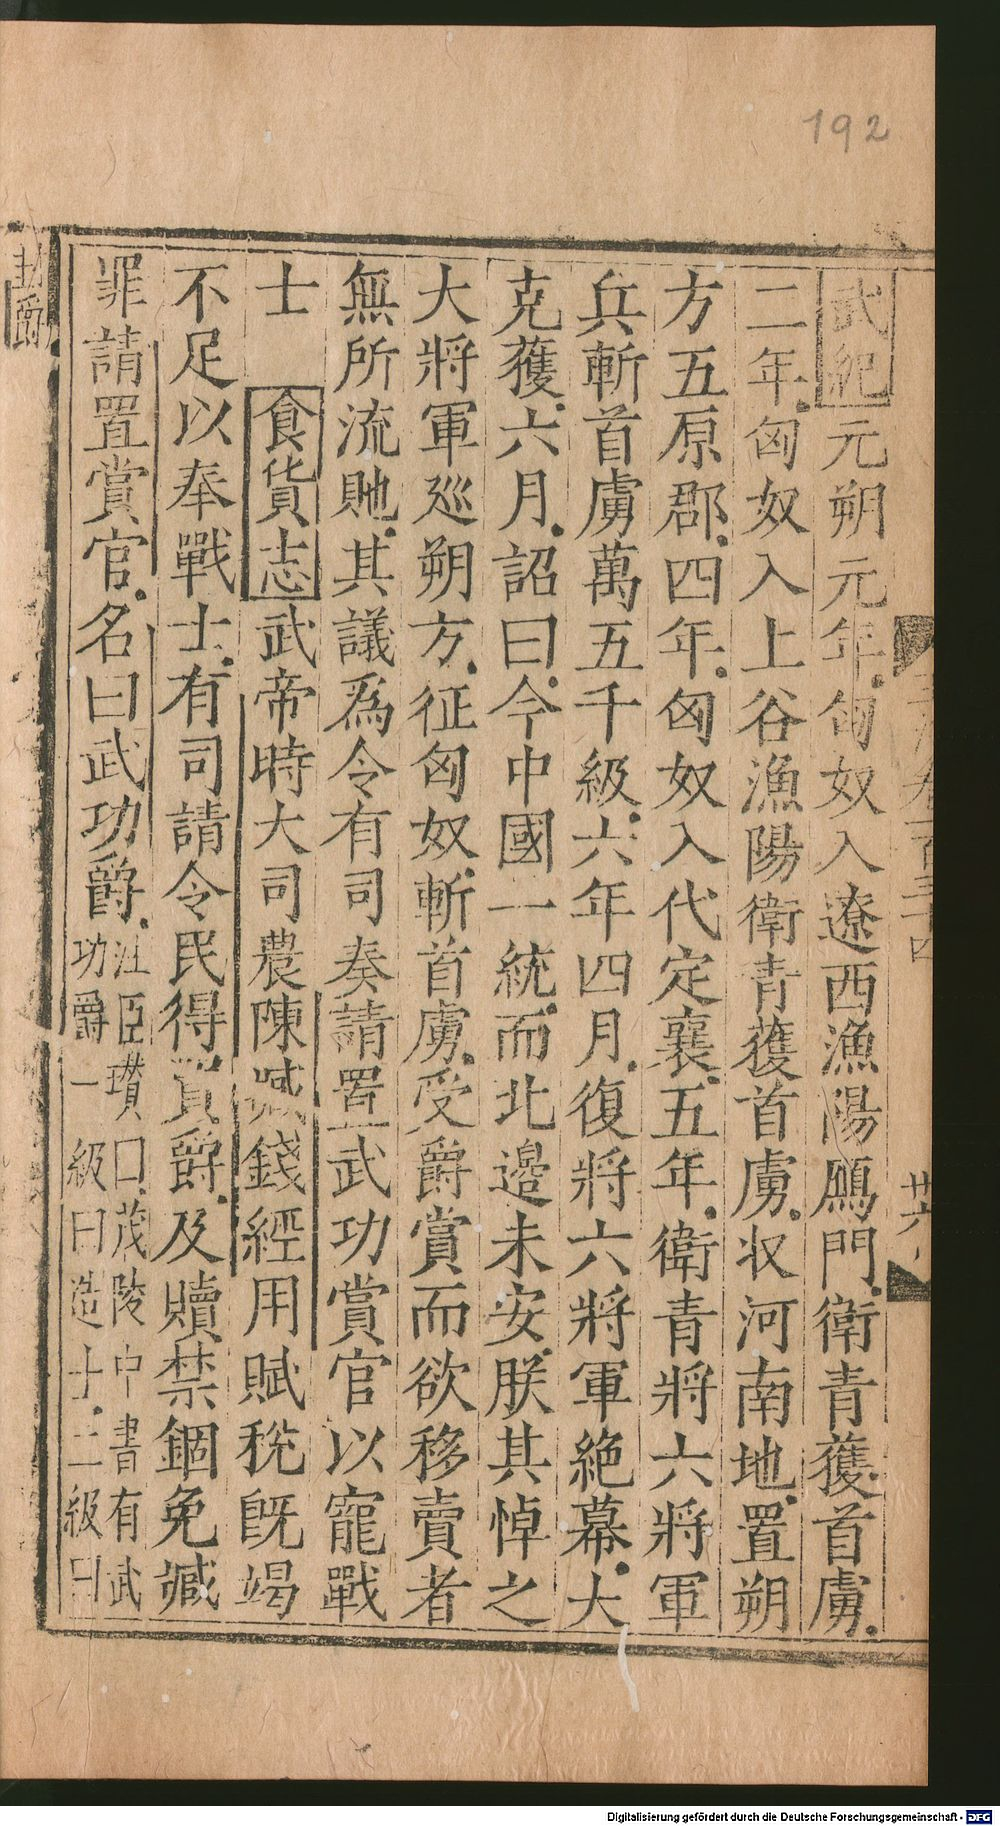 192
武紀元朔元年匈奴入遼西漁陽鴈門衛青獲首虜
二年匈奴入上谷漁陽衛青獲首虜收河南地置朔
方五原郡四年匈奴入代定襄五年衛青將六將軍
兵斬首虜萬五千級六年四月復將六將軍絶幕大
克獲六月詔曰今中國一統而北邊未安朕其悼之
大將軍巡朔方征匈奴斬首虜受爵賞而欲移賣者
無所流貤其議爲令有司奏請置武功賞官以寵戰
士 食貨志武帝時大司農陳臧錢經用賦稅旣竭
不足以奉戰士有司請令民得買爵及贖禁錮免臧
罪請置賞官名曰武功爵注臣瓚曰茂陵中書有武
功爵一級曰造士二級曰
封爵
卷一百三十四
廿六
Digitalisierung gefördert durch die Deutsche Forschungsgemeinschaft - DFG